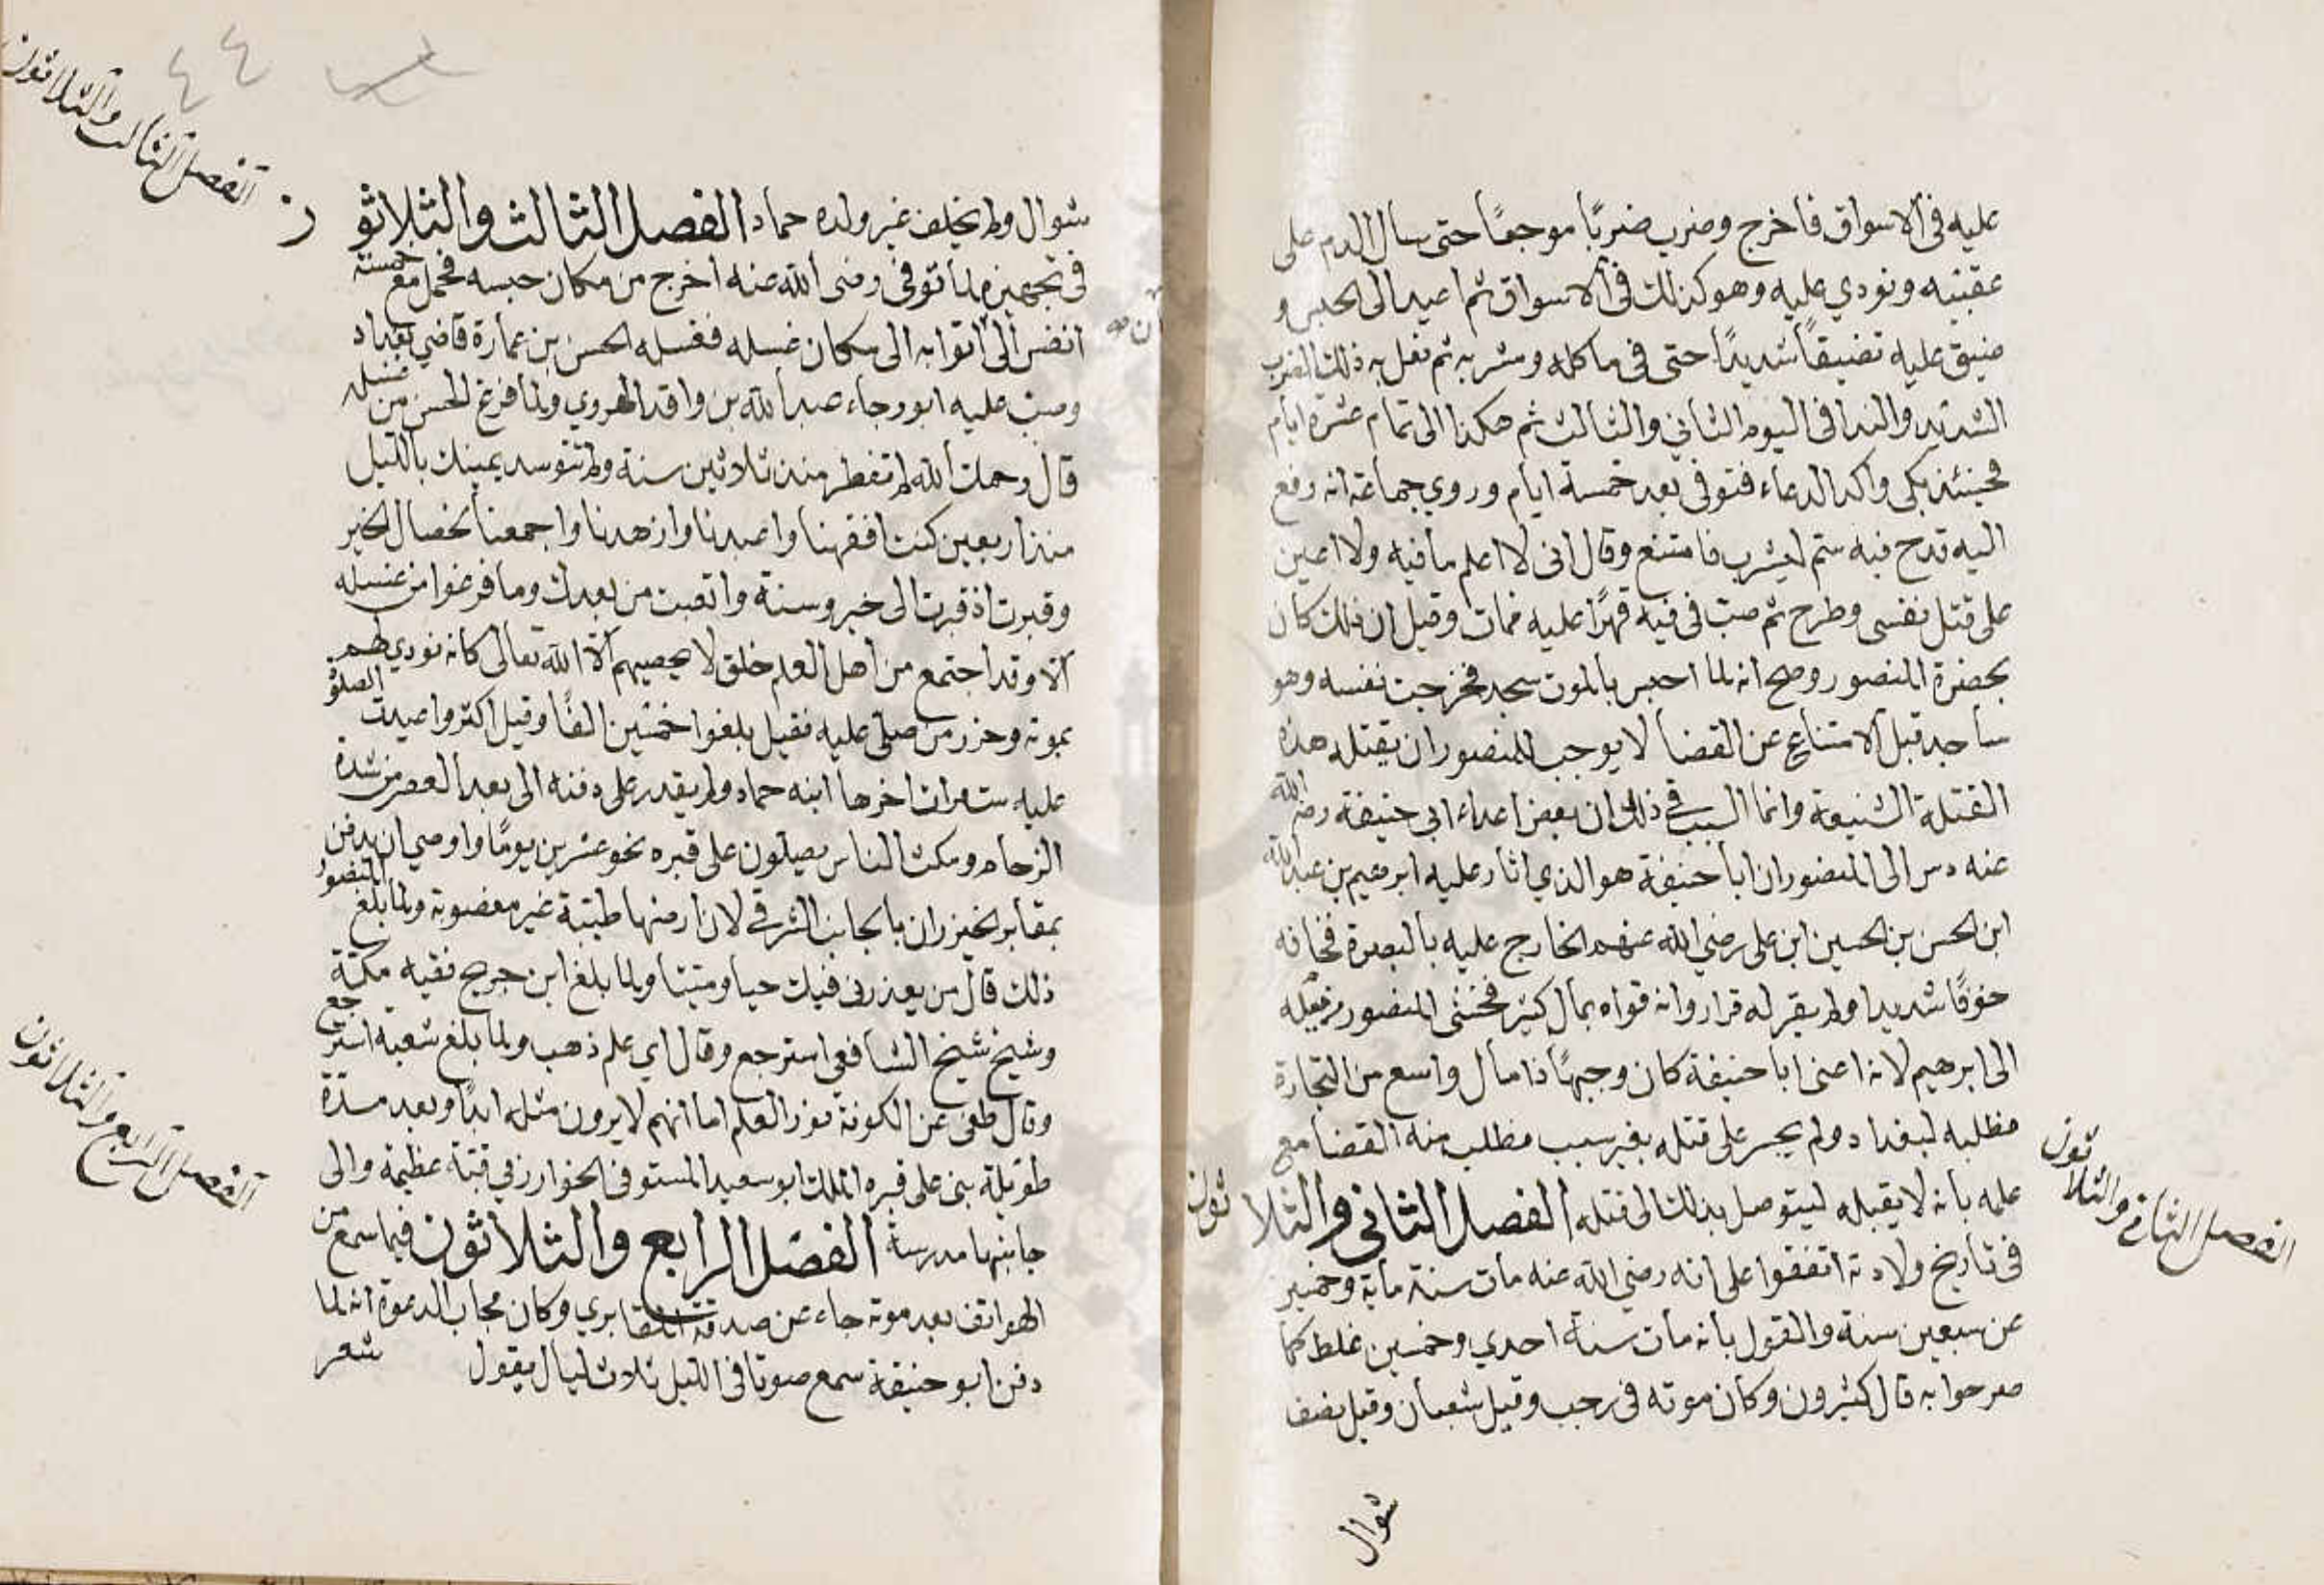 عليه في الاسواق فاخرج وضرب ضربًا موجعًا حتى سال الدم على
عقبيه ونودي عليه وهو كذلك في الاسواق ثم اعيد الى الحبس و
ضيق عليه تضيقاً شديدًا حتى في ماكله ومشربه ثم فعل به ذلك الضرب
الشديد والندا في اليوم الثاني والثالث ثم هكذا الى تمام عشرة ايام
فحينئذ بكى واكد الدعاء فتوفى بعد خمسة ايام وروي جماعة انه رفع
اليه قدح فيه ستم ليشرب فامتنع وقال انى لا اعلم ما فيه ولا اعين
على قتل نفسى وطرح ثم صب في فيه قهرًا عليه فمات وقيل ان ذلك كان
بحضرة المنصور وصح انه لما احس بالموت سجد فخرجت نفسه وهو
ساجد قيل الامتناع عن القضا لا يوجب للمنصور ان يقتله هذه
القتلة الشنيعة وانما السبب في ذلك ان بعض اعداء ابي حنيفة رضى الله
عنه دس الى المنصور ان ابا حنيفة هو الذي اثار عليه ابرهيم بن عبد الله
ابن الحسن بن الحسين ابن على رضي الله عنهم الخارج عليه بالبصرة فخافه
خوفًا شديدا ولم يقر له قرار وانه قواه بمال كثير فخشى المنصور من ميله
الى ابرهيم لانه اعنى ابا حنيفة كان وجيهًا ذا مال واسع من التجارة
فطلبه لبغداد ولم يجسر على قتله بغير سبب فطلب منه القضا مع
علمه بانه لا يقبله ليتوصل بذلك الى قتله الفصل الثاني والثلاثون
في تاريخ ولادته اتفقوا على انه رضي الله عنه مات سنة ماية وخمسين
عن سبعين سنة والقول بانه مات سنة احدي وخمسين غلط كما
صرحوا به قال كثيرون وكان موته في رجب وقيل شعبان وقيل نصف
شوال
الفصل الثاني والثلاثون
شوال ولم يخلف غير ولده حماد الفصل الثالث والثلاثون
في تجهيزه لما توفى رضى الله عنه اخرج من مكان حبسه فحمل مع خمسة
انفس الى الى مكان غسله فغسله الحسن بن عمارة قاضي بغداد
وصب عليه ابو رجاء عبد الله بن واقد الهروي ولما فرغ الحسن من غسله
قال رحمك الله لم تفطر منذ ثلاثين سنة ولم تتوسد يمينك بالليل
منذ اربعين كنت افقهنا واعبدنا وازهدنا واجمعنا لخصال الخير
وقبرت اذ قبرت الى خير وسنة واتعبت من بعدك وما فرغوا من غسله
الا وقد اجتمع من اهل العلم خلق لا يحصيهم الا الله تعالى كانه نودي لهم
بموته وحزر من صلى عليه فقيل بلغوا خمسين الفًا وقيل اكثر واعيدت الصلوة
عليه ست مرات اخرها ابنه حماد ولم يقدر على دفنه الى بعد العصر من شدة
الزحام ومكث الناس يصلون على قبره نحو عشرين يومًا واوصي ان يدفن
بمقابر الخيزران بالجانب الشرقي لان ارضها طيبة غير مغصوبة ولما بلغ المنصور
ذلك قال من يعذرنى فيك حيا وميتا ولما بلغ ابن جريج فقيه مكة
وشيخ شيخ الشافعى استرجع وقال اي علم ذهب ولما بلغ شعبة استرجع
وقال طفى عن الكوفة نور العلم اما انهم لا يرون مثله ابدًا وبعد مدة
طويلة بنى على قبره الملك ابو سعيد المستوفى الخوارزمي قبة عظيمة والى
جانبها مدرسة الفصل الرابع والثلاثون فيما سمع من
الهواتف بعد موته جاء عن صدقة المقابري وكان مجاب الدعوة انه لما
دفن ابو حنيفة سمع صوتا في الليل ثلاث ليال يقول شعر
الفصل الثالث والثلاثون
الفصل الرابع والثلاثون
٤٤